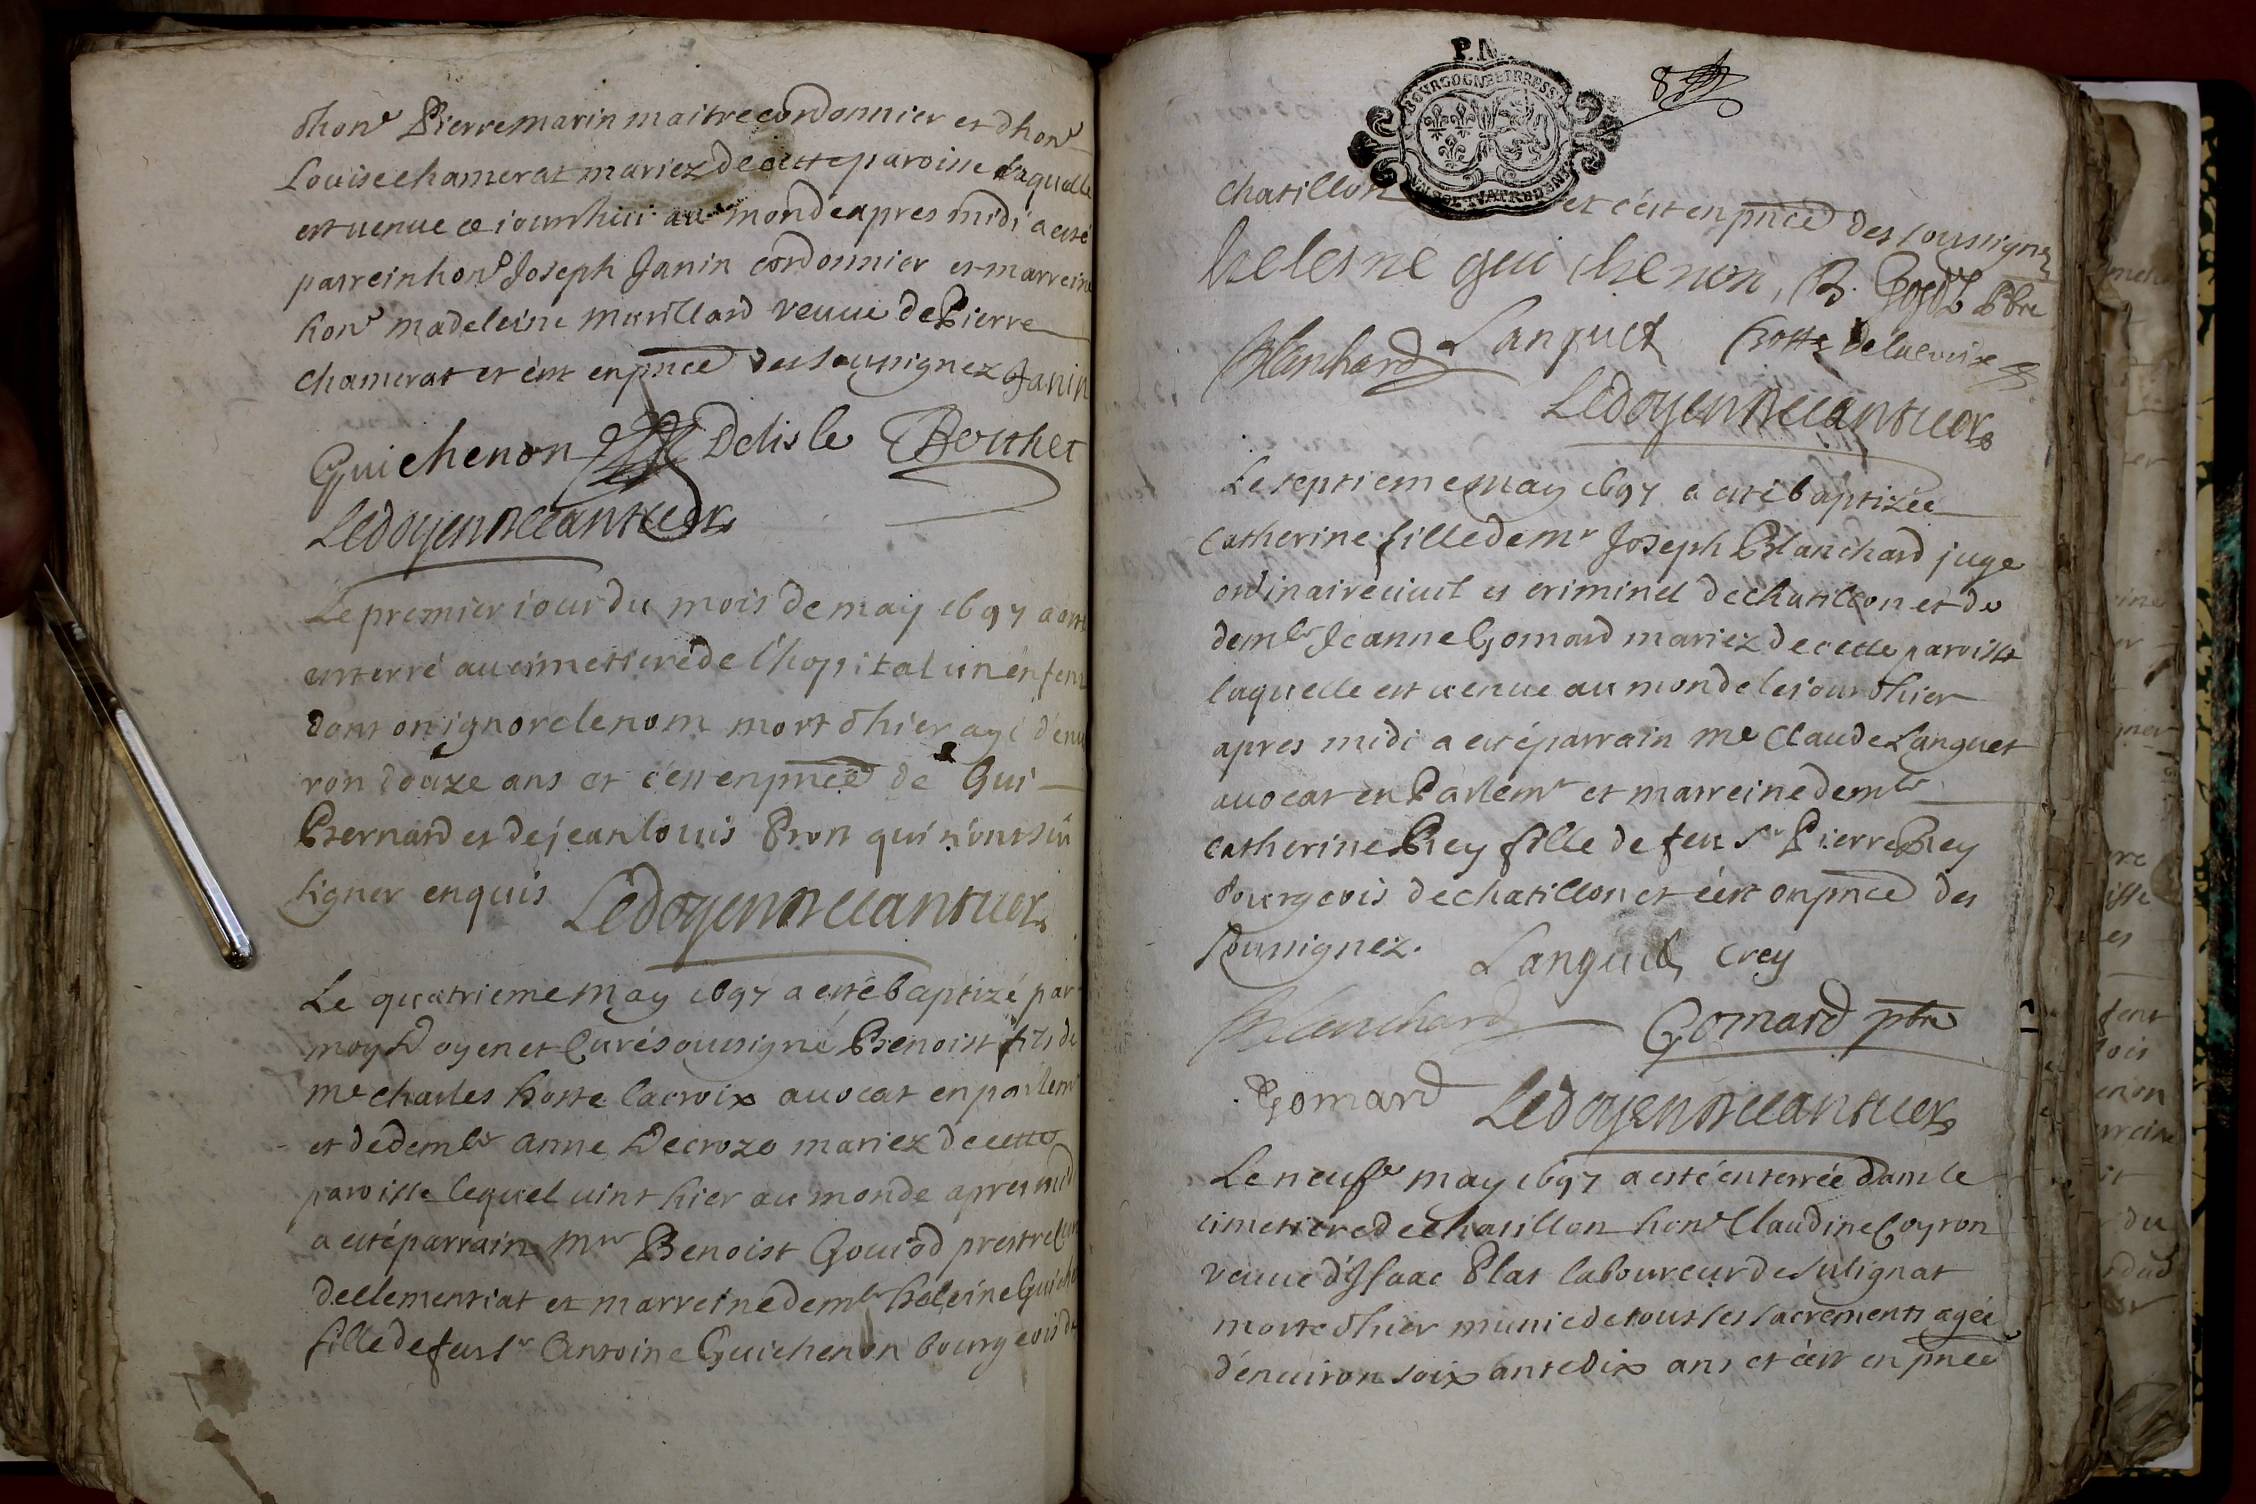 dhon^e Pierre marin maitre cordonnier et dhon^e
Louise chamerat mariez de cette paroisse laquelle
est venue ce iourdhui au monde apres midi a esté
parrein hon^e Joseph Janin cordonnier et marreine
hon^e madeleine murillard veuue de Pierre
chamerat et c'est en pnce des soussignez Janin
Guichenon Delisle Bouchet
Ledoyen
Le premier iour du mois de may 1697 a esté
enterré au cimettiere de l'hopital un enfent
dont on ignore le nom mort dhier agé d'enui
ron douze ans et c'est en pnce de Gui
Bernard et de jean louis Pron qui n'ont sù
signer enquis Ledoyen
Le quatrieme may 1697 a esté baptizé par
moy Doyen et Curé soussigné Benoist fils de
m^e charles hotte lacroix auocat en parlem^t
et de dem^lle anne Decrozo mariez de cette
paroisse lequel uint hier au monde apres midi
a esté parrain m^re Benoist Gouiod prestre Curé
de clementiat et marreine dem^lle heleine Guichenon
fille de feu s^r Antoine Guichenon bourgeois de
P.N.
BOVRGOGNE ET BRESSE
8
chatillon et c'est en pnce des soussignez
heleine gui chenon, B. Pbre
Blanchard Languet hotte Delacroix
Ledoyen
Le septieme may 1697 a esté baptizée
catherine fille de m^r Joseph Blanchard juge
ordinaire ciuil et criminel de chatillon et de
dem^lle Jeanne Gomard mariez de cette paroisse
laquelle est uenue au monde le iour dhier
apres midi a esté parrain m^e Claude Languet
auocat en Parlem^t et marreine dem^lle
catherine Rey fille de feu s^r Pierre Rey
bourgeois de chatillon et c'est en pnce des
soussignez. Languet crey
Blanchard Gomard pbre
Gomard Ledoyen
Le neuf^e may 1697 a esté enterrée dans le
cimettiere de chatillon hon^e Claudine Coyron
veuue d'Isaac Plat laboureur de sulignat
morte dhier munie de tous les sacrements agée
d'enuiron soixante dix ans et c'est en pnce